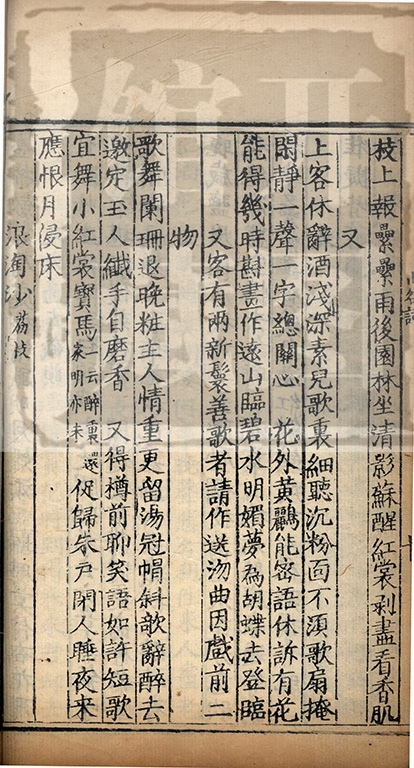 枝上報纍纍雨後園林坐清影蘇醒紅裳剥盡看香肌
又
上客休辭酒淺深素兒歌裏細聽沉粉面不湏歌扇掩
閑靜一聲一字緫關心 花外黄鸝能宻語休訴有花
能得幾時斟畫作遠山臨碧水明媚夢為胡蝶去登臨
又客有兩新鬟善歌者請作送汤曲因戲前二
物
歌舞闌珊退晚粧主人情重更留湯冠帽斜欹辭醉去
邀定玉人纎手自磨香 又得樽前聊笑語如許短歌
宜舞小紅裳寳馬一云醉裏還家明亦未促歸朱户閉人睡夜來
應恨月侵床
浪淘沙荔枝